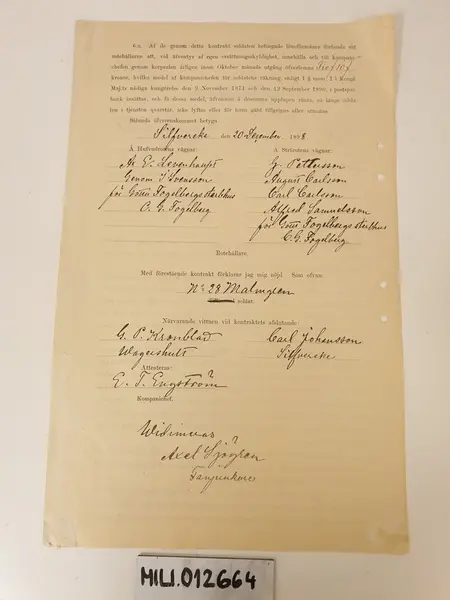 8:o. Af de genom detta kontrakt soldaten betingade löneförmåner förbinda sig
rotehållaren att, vid äfventyr af egen ersättningsskyldighet, innehålla och till kompani-
chefen genom korpralen årligen inom Oktober månads utgång öfverlemna Tio (10)
kronor, hvilka medel af kompanichefen för soldatens räkning, enligt 1 § mom. i Kongl
Maj:ts nådiga kungörelse den 3 November 1871 och den 12 September 1890, i postspar-
bank insättas, och få dessa medel, äfvensom å desamma upplupen ränta, så länge solda-
ten i tjensten qvarstår, icke lyftas eller för hans gäld tillgripas eller utmätas.
Sålunda öfverenskommet betygs
Silfvereke den 20 December 1898
Å Hufvudrotens vägnar:
Ar. E. Lewenhaupt
Genom J Svensson
för Gösta Fogelbergs sterbhus
C. G. Fogelberg
Å Strörotens vägnar:
G. Pettersson
August Carlson
Carl Carlsson
Alfred Samuelsson
för Gösta Fogelbergs sterbhus
C.G. Fogelberg
Rotehållare.
Med förestående kontrakt förklarar jag mig nöjd. Som ofvan
No 28 Malmgren
soldat.
Närvarande vittnen vid kontraktets afslutande:
G. P. Kronblad
Wagershult
Carl Johansson
Silfvereke
Attesteras:
E. T. Engström
Kompanichef.
Widimeras
Axel Sjögren
Fanjunkare
MILI.012664